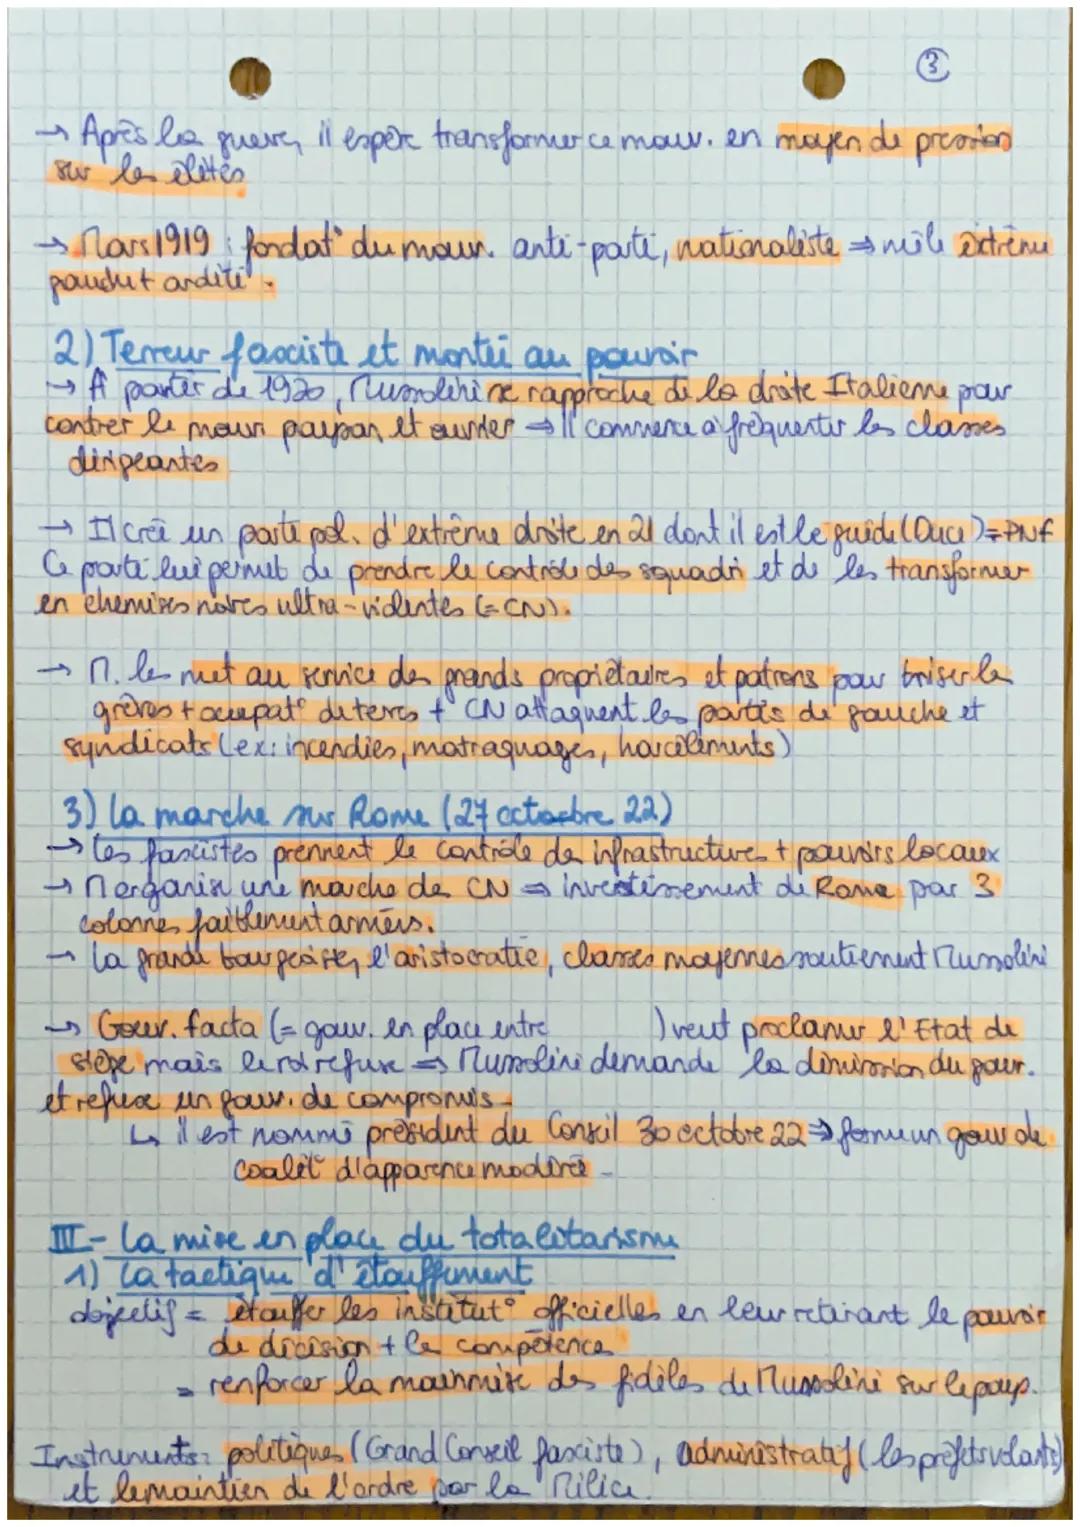 3
→ Après la guerre, il espère transformer ce mouv. en moyen de pression
sur les élites
→ Mars 1919 : fondat° du mouv. anti-parti, nationaliste ⇒ mêle extrême
gauche + arditi.
2) Terreur fasciste et montée au pouvoir
→ A partir de 1920, Mussolini se rapproche de la droite Italienne pour
contrer le mouv paysan et ouvrier ⇒ Il commence à fréquenter les classes
dirigeantes
→ Il crée un parti pol. d'extrême droite en 21 dont il est le guide (Duce) = PNF
Ce parti lui permet de prendre le contrôle des squadri et de les transformer
en chemises noires ultra-violentes (= CN).
→ M. les met au service des grands propriétaires et patrons pour briser les
grèves + occupat° de terres + CN attaquent les partis de gauche et
syndicats (ex: incendies, matraquages, harcèlements)
3) La marche sur Rome (27 octobre 22)
→ Les fascistes prennent le contrôle des infrastructures + pouvoirs locaux
→ M organise une marche des CN ⇒ investissement de Rome par 3
colonnes faiblement armées.
→ La grande bourgeoisie, l'aristocratie, classes moyennes soutiennent Mussolini
→ Gouv. facta (= gouv. en place entre ) veut proclamer l'Etat de
siège mais le roi refuse ⇒ Mussolini demande la démission du gouv.
et refuse un gouv. de compromis.
↳ il est nommé président du Conseil 30 octobre 22 ⇒ forme un gouv de
coalit° d'apparence modérée.
III- La mise en place du totalitarisme
1) La tactique d'étouffement
objectif = étouffer les institut° officielles en leur retirant le pouvoir
de décision + la compétence
= renforcer la mainmise des fidèles de Mussolini sur le pays.
Instruments: politiques (Grand Conseil fasciste), administratif (les préfets volants)
et le maintien de l'ordre par la Milice.